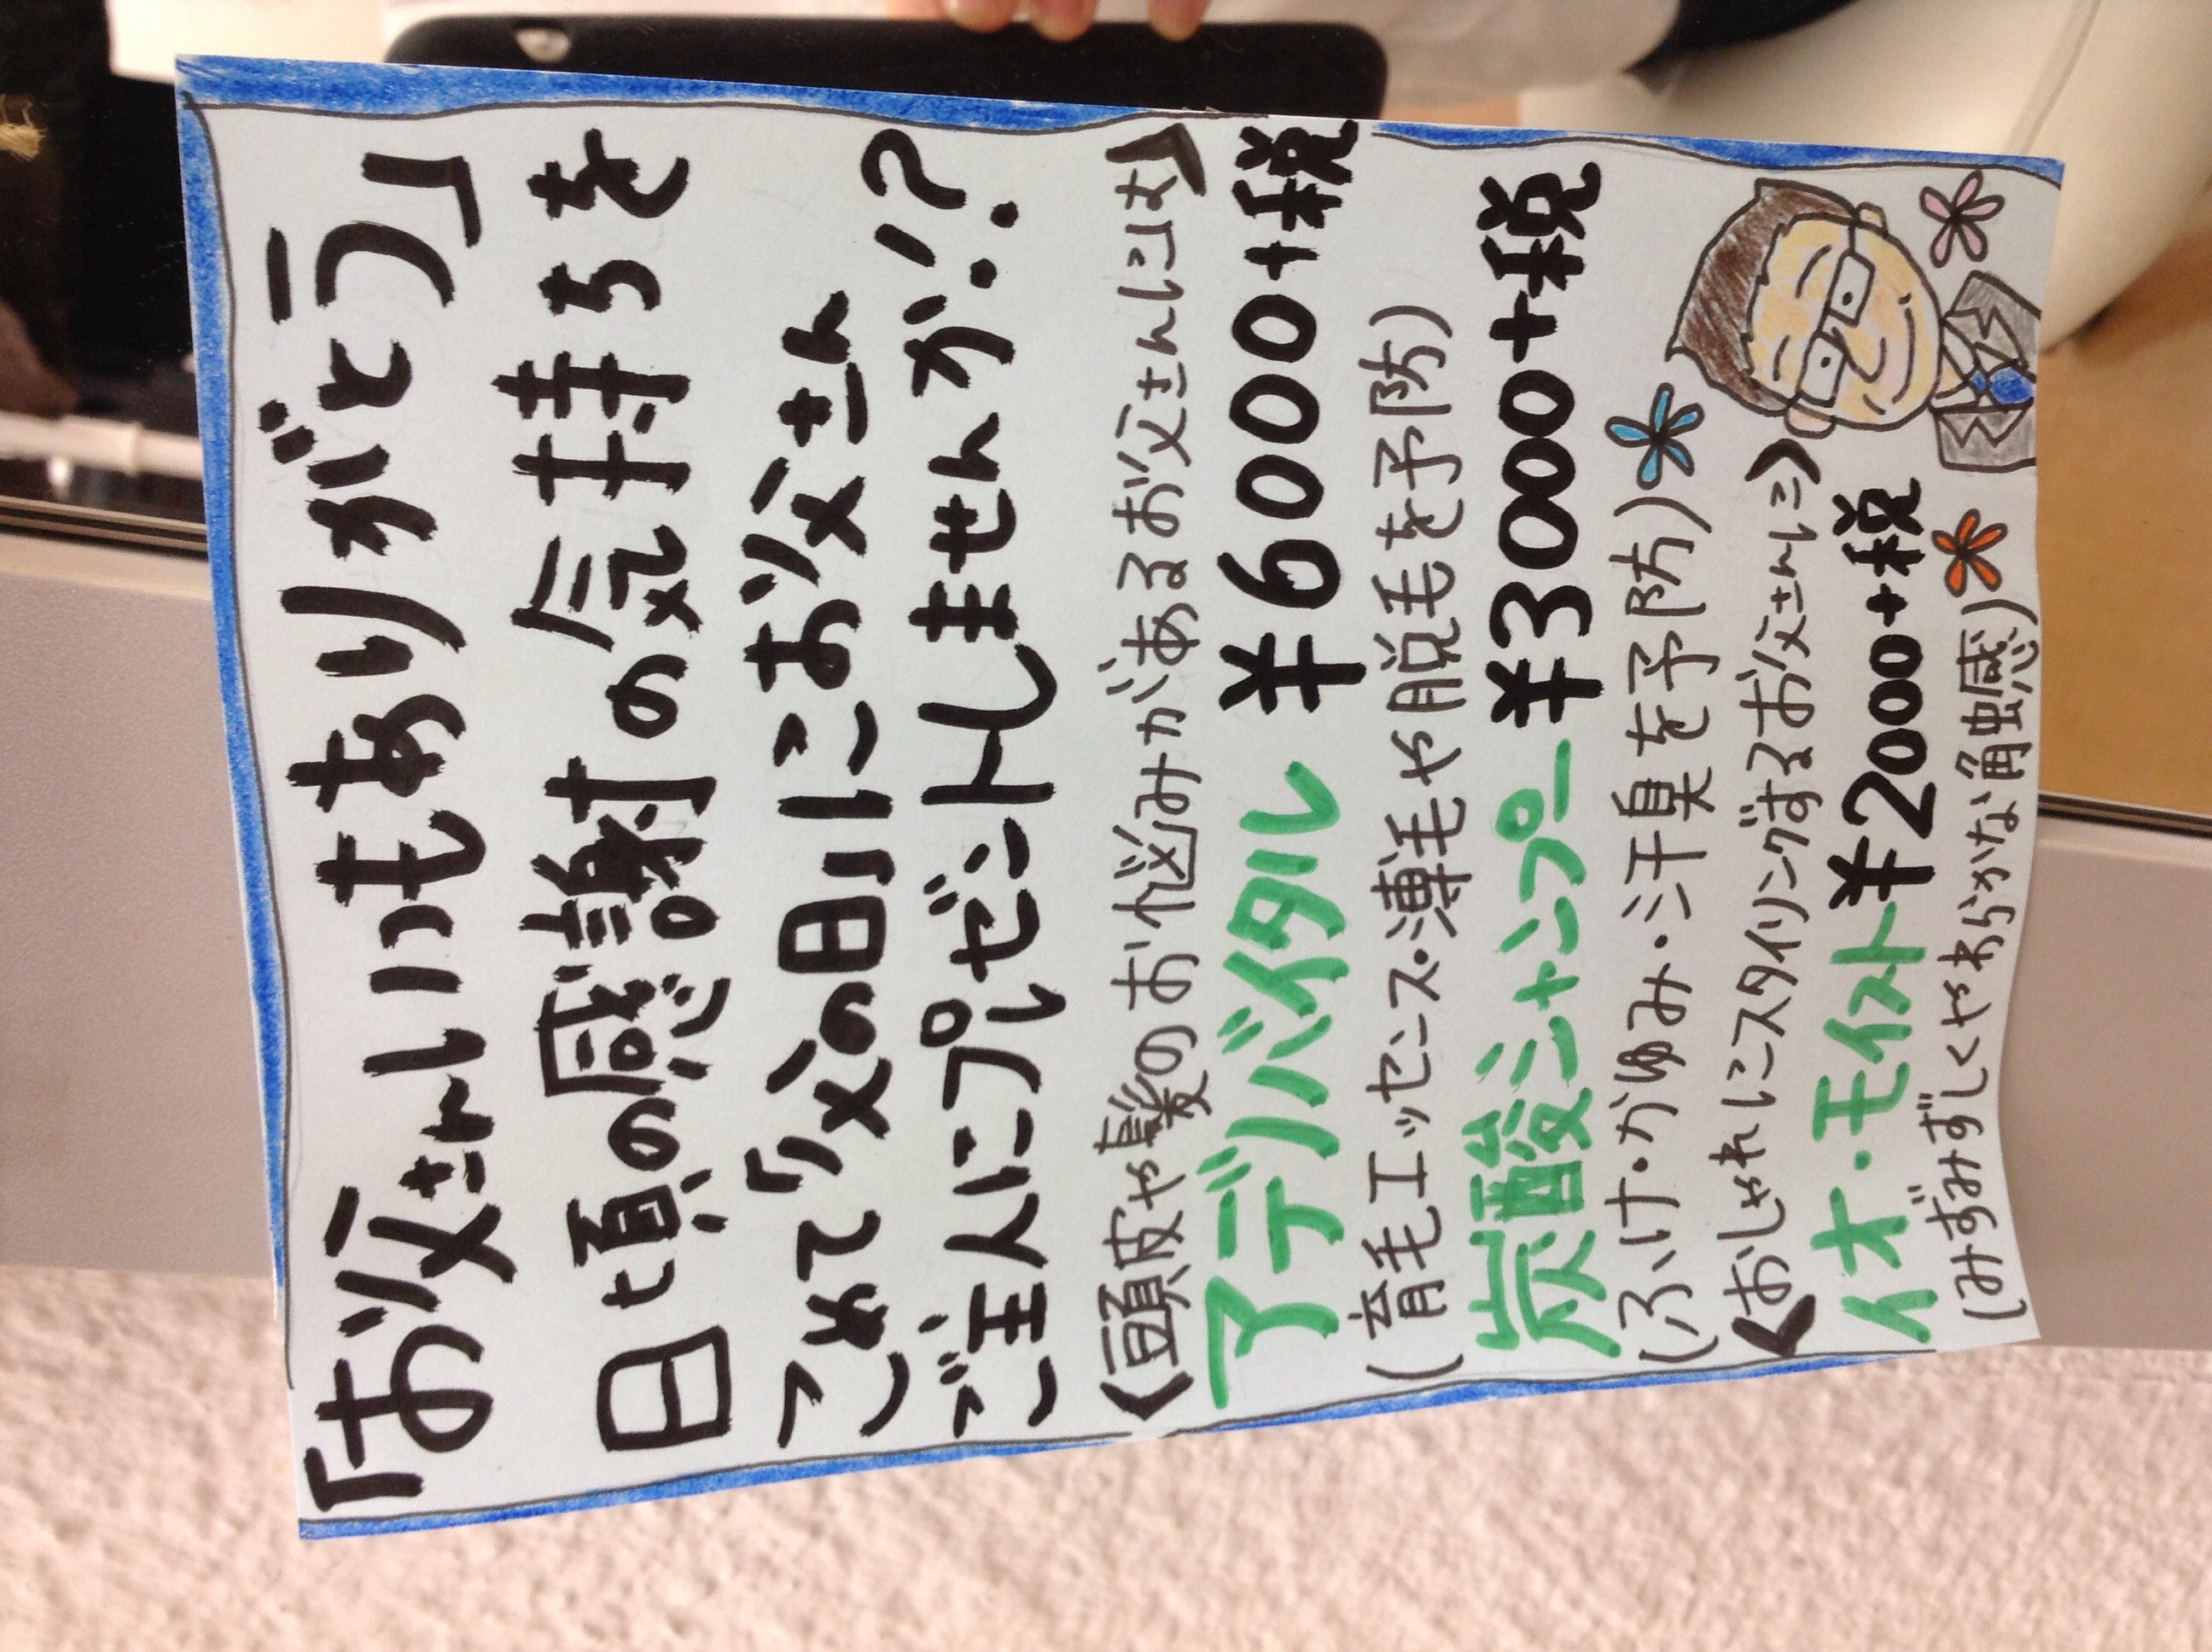 「お父さんいつもありがとう」
日頃の感謝の気持ちを
こめて「父の日」にお父さん
ご主人にプレゼントしませんか!?
《頭皮や髪のお悩みがあるお父さんには》
アデノバイタル ¥6000+税
(育毛エッセンス・薄毛や脱毛を予防)
炭酸シャンプー ¥3000+税
(ふけ・かゆみ・汗臭を予防)
《おしゃれにスタイリングするお父さんに》
イオ・モイスト ¥2000+税
(みずみずしくやわらかな触感)